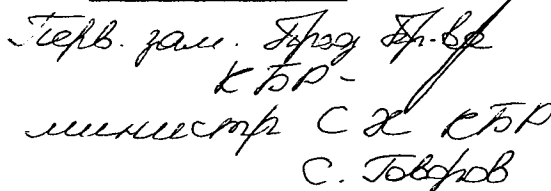 Перв. зам. Пред Пр-ва
КБР -
министр С Х КБР
С. Говоров